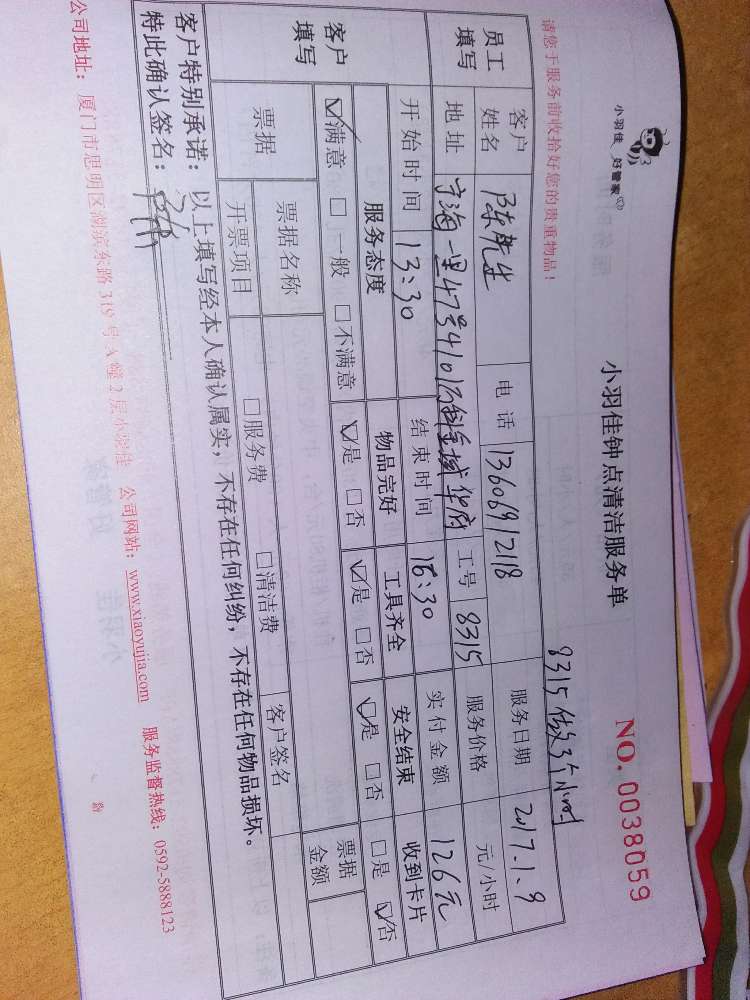 小羽佳 好管家
小羽佳钟点清洁服务单
NO. 0038059
请您于服务前收拾好您的贵重物品!
8315 做3个小时
员工填写 客户姓名 陈先生 电话 13606912118 服务日期 2017.1.9
地址 宁海一里47号410 金域华府 工号 8315 服务价格 元/小时
开始时间 13:30 结束时间 16:30 实付金额 126元
客户填写 服务态度 物品完好 工具齐全 安全结束 收到卡片
☑满意 □一般 □不满意 ☑是 □否 ☑是 □否 ☑是 □否 □是 ☑否
票据 票据名称 客户签名 票据金额
开票项目 □服务费 □清洁费
客户特别承诺:以上填写经本人确认属实,不存在任何纠纷,不存在任何物品损坏。
特此确认签名:
公司地址:厦门市思明区湖滨东路319号A幢2层小羽佳 公司网站:www.xiaoyujia.com 服务监督热线:0592-5888123